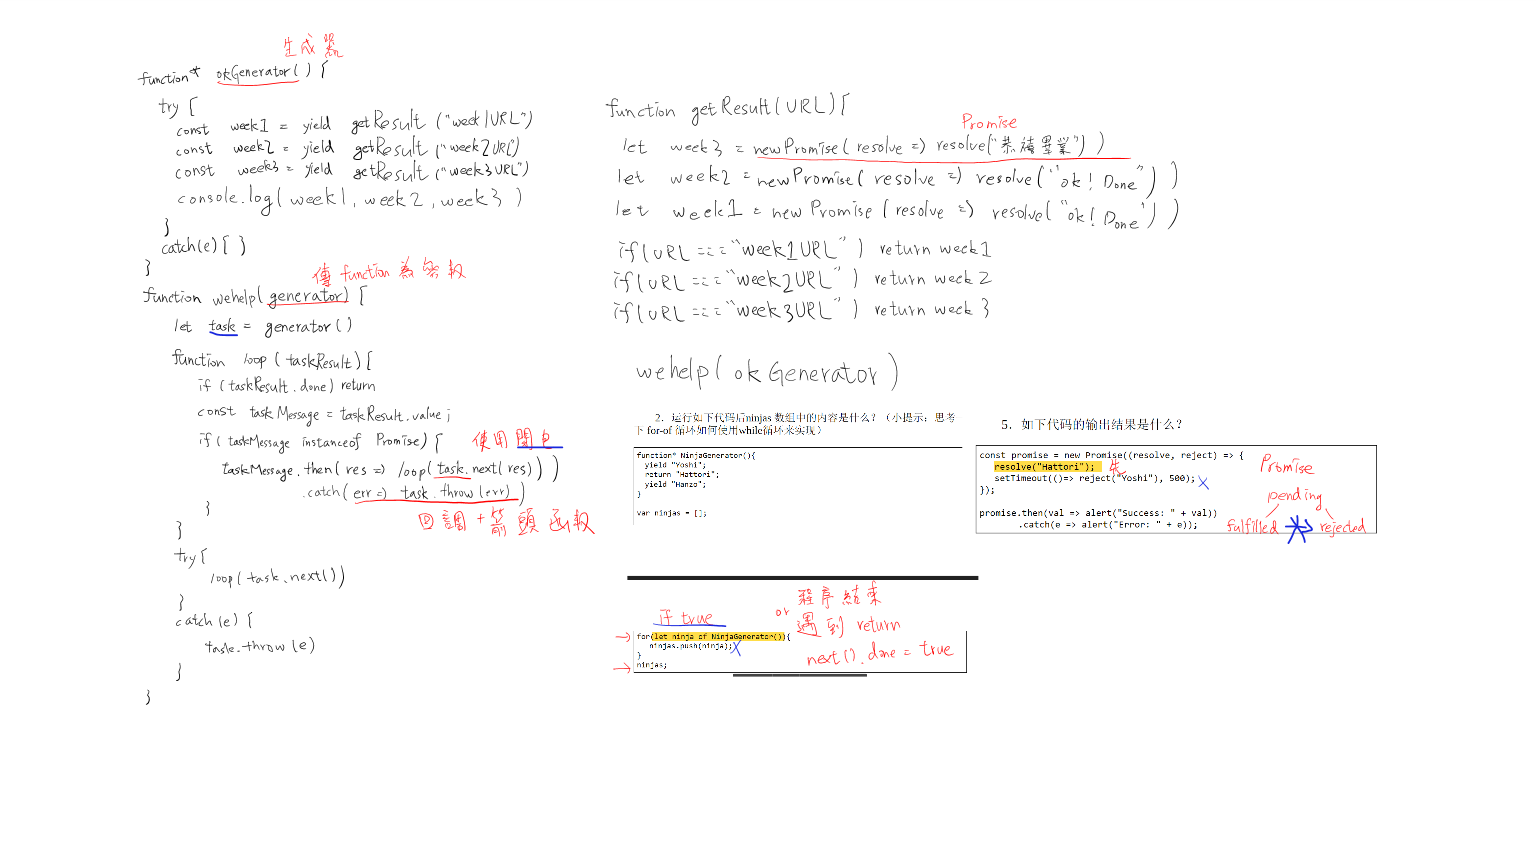 生成器
function* okGenerator() {
try {
const week1 = yield getResult ("week1URL")
const week2 = yield getResult ("week2URL")
const week3 = yield getResult ("week3URL")
console.log( week1, week2, week3 )
}
catch(e){ }
}
傳 function 為參數
function wehelp( generator) {
let task = generator()
function loop ( taskResult) {
if (taskResult.done) return
const taskMessage = taskResult.value;
if( taskMessage instanceof Promise) {
使用閉包
taskMessage.then( res => loop( task.next( res) ) )
.catch( err => task.throw (err) )
回調 + 箭頭函數
}
}
try {
loop( task.next())
}
catch (e) {
task.throw (e)
}
}
function getResult(URL) {
Promise
let week3 = newPromise( resolve => resolve("恭禧畢業") )
let week2 = newPromise( resolve => resolve("ok! Done") )
let week1 = newPromise ( resolve => resolve("ok! Done") )
if(URL === "week1URL") return week1
if(URL === "week2URL") return week2
if(URL === "week3URL") return week3
wehelp( okGenerator)
2．运行如下代码后ninjas 数组中的内容是什么？（小提示：思考
下 for-of 循环如何使用while循环来实现）
function* NinjaGenerator(){
yield "Yoshi";
return "Hattori";
yield "Hanzo";
}
var ninjas = [];
if true
or 程序結束
遇到 return
next().done = true
for(let ninja of NinjaGenerator()){
ninjas.push(ninja);
}
ninjas;
5．如下代码的输出结果是什么？
const promise = new Promise((resolve, reject) => {
resolve("Hattori"); 先
setTimeout(()=> reject("Yoshi"), 500);
});
promise.then(val => alert("Success: " + val))
.catch(e => alert("Error: " + e));
Promise
pending
fulfilled rejected